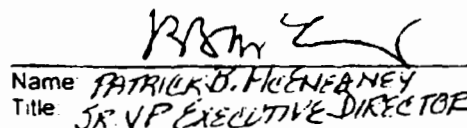 Name: PATRICK B. McENEANEY
Title: SR. VP EXECUTIVE DIRECTOR